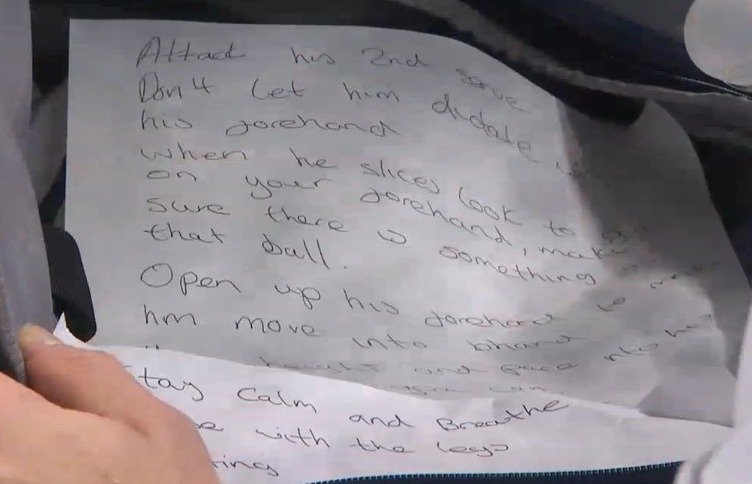 Attack his 2nd serve.
Don't let him dictate
his forehand
when he slices look to
on your forehand, make
sure there is something
that ball.
Open up his forehand to
him move into bhand
height and pace into his
you can
tay Calm and Breathe
with the legs
ring